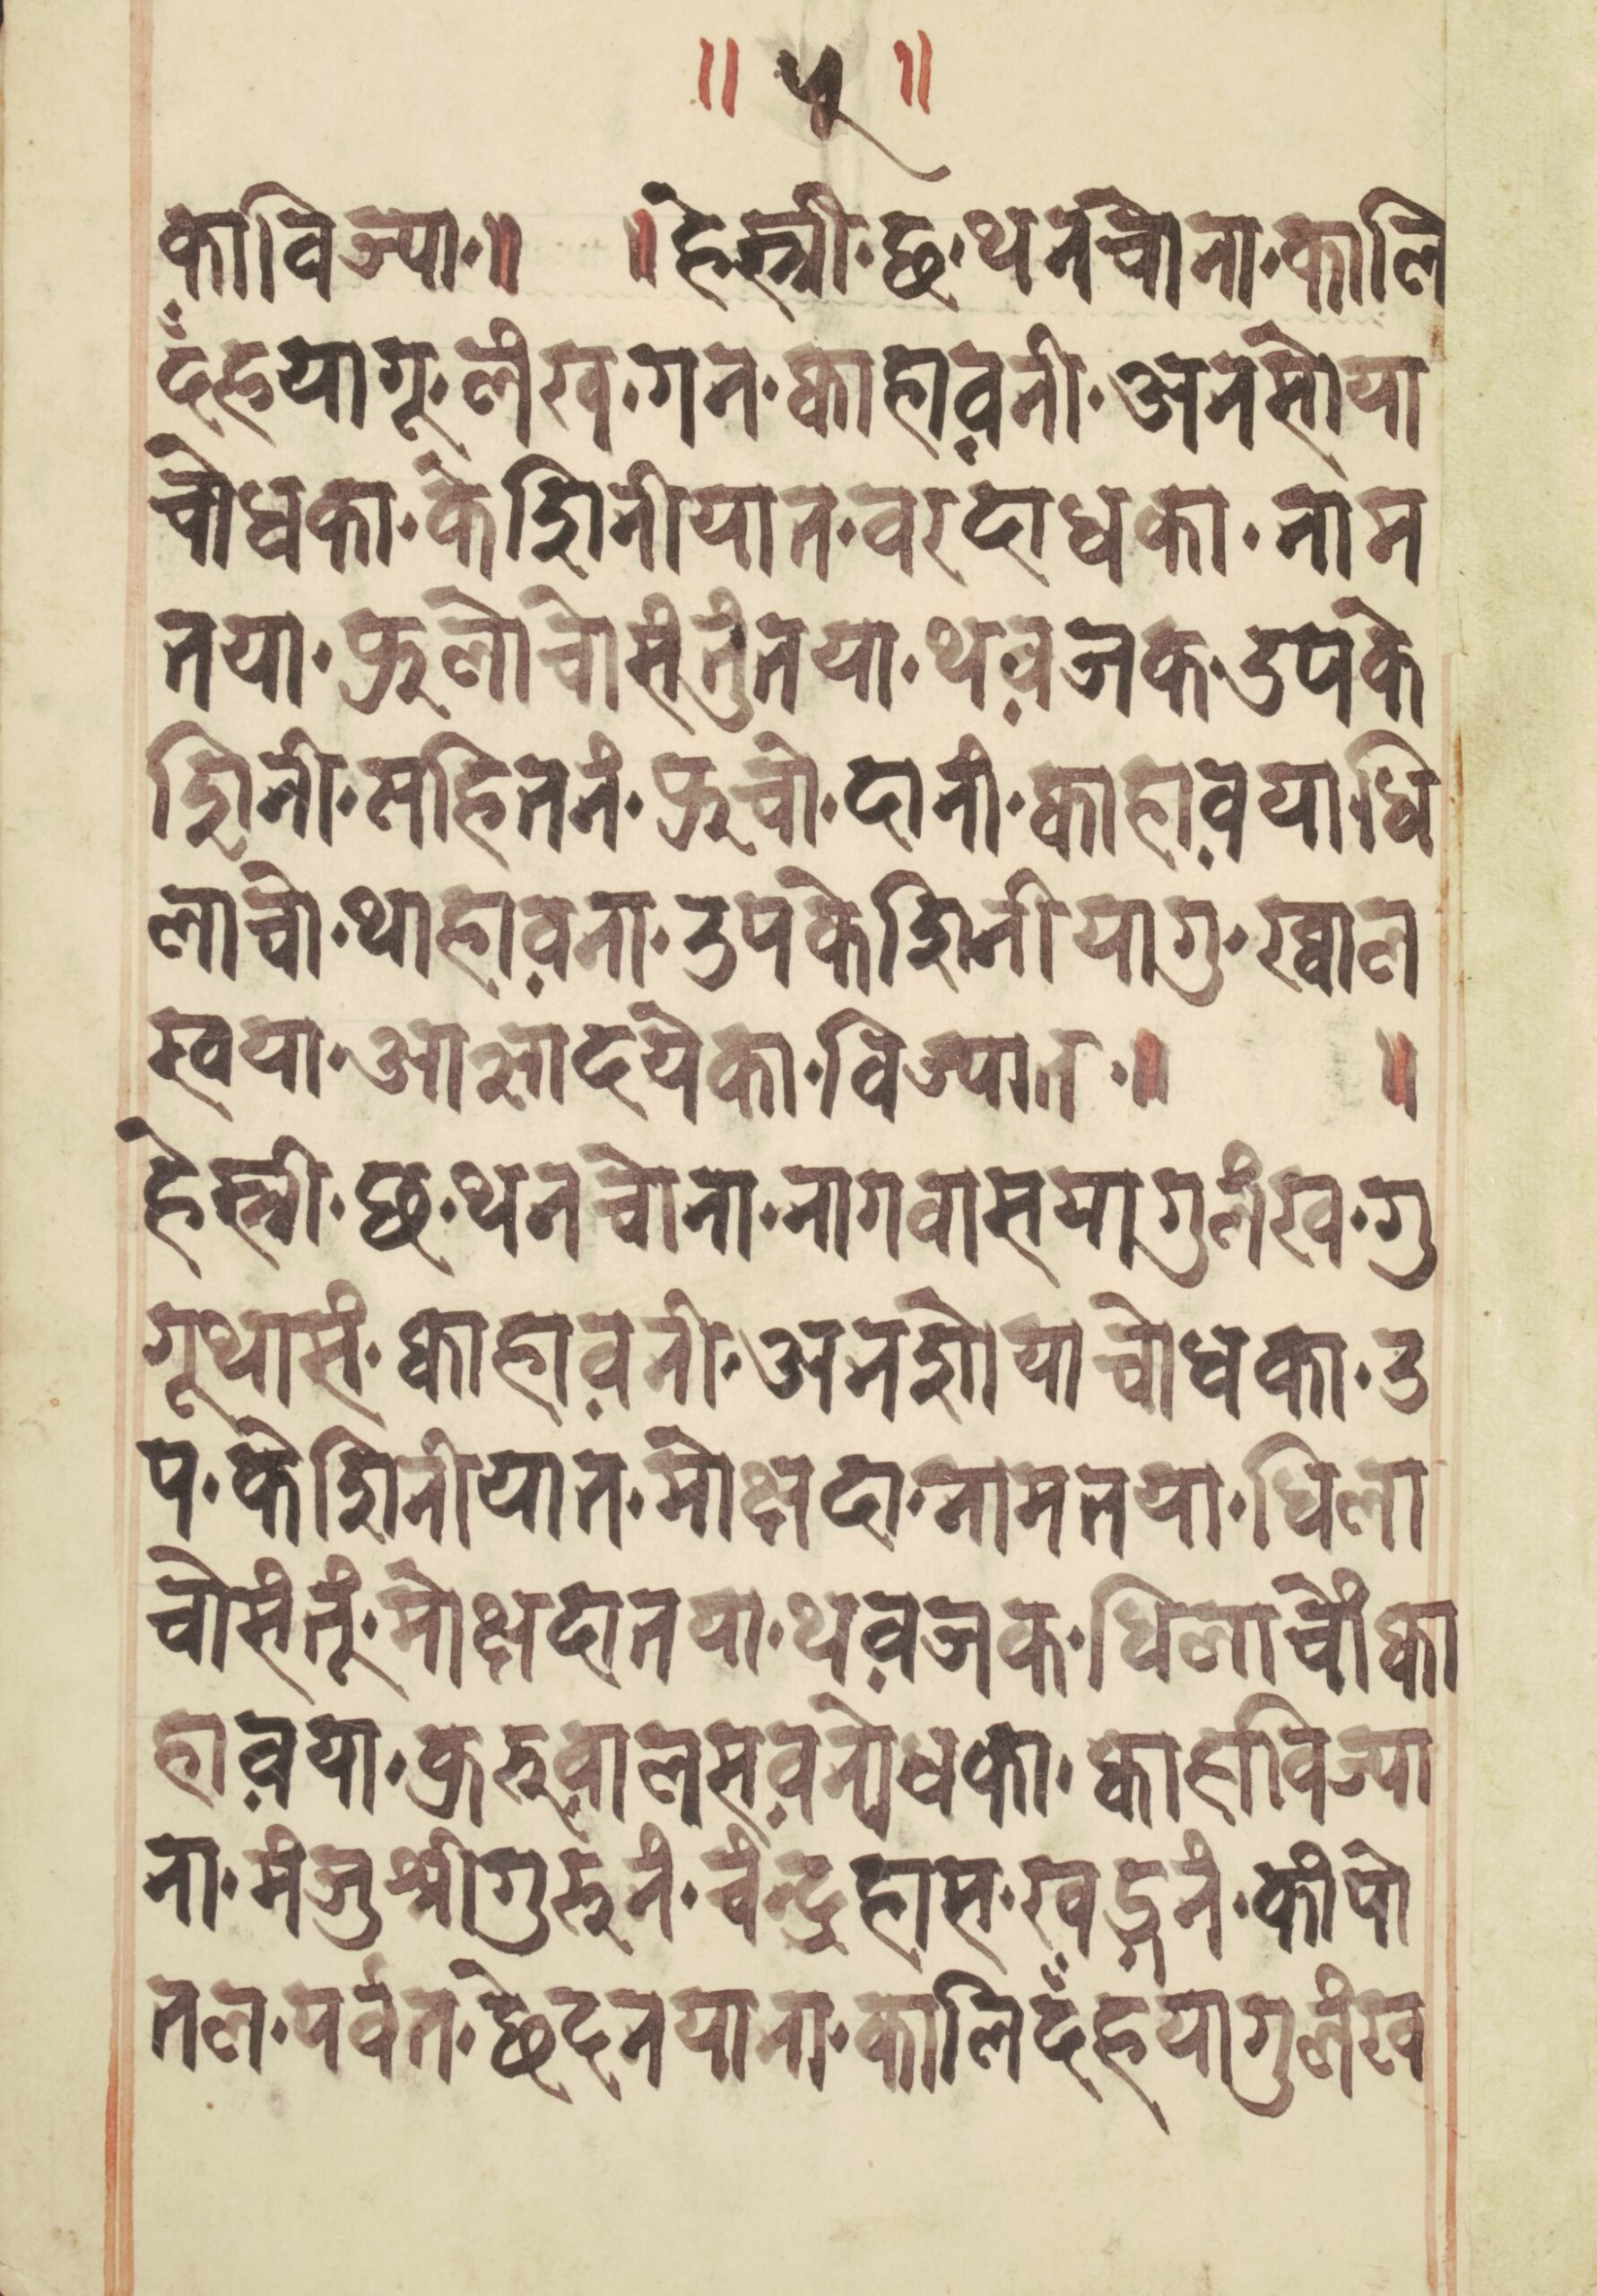 ॥ ५ ॥
काविज्या·॥ ॥हेस्त्री·छ·थनंचोना·कालि
दंह्रयागू·लंख·गन·क्वाहाव़नी·अनसोया
चोधका·केशिनीयात·वरदाधका·नाम
तया·फ्रुलोचोसंतुंतया·थव़जक·उपके
शिनी·सहितनं·फ्रुचो·दानी·क्वाहाव़याधि
लाचो·थाहाव़ना·उपकेशिनीयागु·ख्वाल
स्वया·आसादयेका·विज्यात·॥ ॥
हेस्त्री·छ·थनचोना·नागवासयागुलंख·गु
गूथासं·क्वाहाव़नी·अनशोयाचोधका·उ
प·केशिनीयात·मोक्षदा·नामतया·धिला
चोसंतूं·मोक्षदातया·थव़जक·धिलाचों‌क्वा
हाव़या·क्रुरुवालसव़नेधका·क्वाहाविज्या
ना·मंजुश्रीगुरुनं·चंन्द्रहास·खड्गनं·कंपो
तल·पर्वत·छेदनयाना·कालिदंह्रयागुलंख